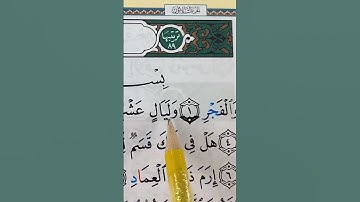 ترتيبها
٨٩
بِسْ
وَٱلْفَجْرِ ١ وَلَيَالٍ عَشْ
٤ هَلْ فِي كَ قَسَمٌ
٦ إِرَمَ ذَ ٱلْعِمَادِ